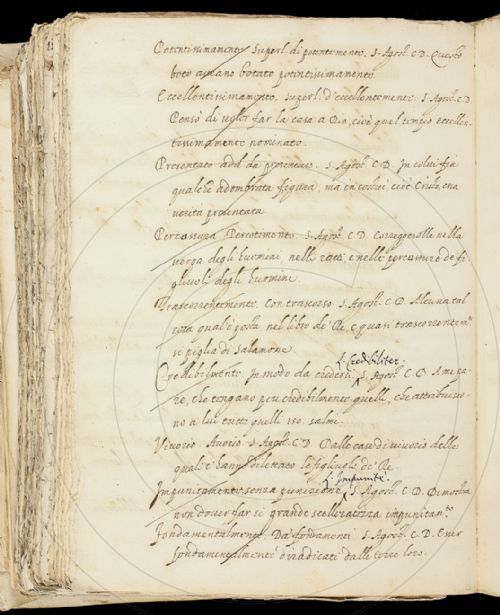 Potentissimamente. Superl. di potentemente. S. Agost. C. D. Questo
boto aueano botato potentissimamente.
Eccellentissimamente. Superl. d'eccellentemente. S. Agost. C. D.
Pensò di uoler far la casa a Dio, cioè quel tempio eccellen-
tissimamente nominato.
Presentato add. da presentare. S. Agost. C. D. In colui fia
qualche adombrata figura, ma in costui, cioè Cristo, era
verità presentata
Percossura Percotimento. S. Agost. C. D. Correggerolle nella
verga degli huomini, nelli tatti e nelle percussure de fi-
gliuoli degli huomini.
Trascorrentemente. Con trascorso S. Agost. C. D. Alcuna tal
cosa qual è posta nel libro de' Re, e quasi trascorrentem.te
si piglia di Salamone.
L. Credibiliter.
Credibilmente In modo da credersi S. Agost. C. D. A me pa-
re, che tengano piu credibilmente quelli, che attribuisco-
no a lui tutti quelli 150. salmi.
Viuorio Auorio S. Agost. C. D. Dalle case di viuorio delle
quali t'hanno dilettato le figliuole de' Re
L. Impunitè.
Impunitamente senza punizione S. Agost. C. D. Dimostra
non douer far si grande scelleratezza impunitam.te
Fondamentalmente Da' fondamenti S. Agost. C. D.
fondamentalmente diradicati dalle terre loro.